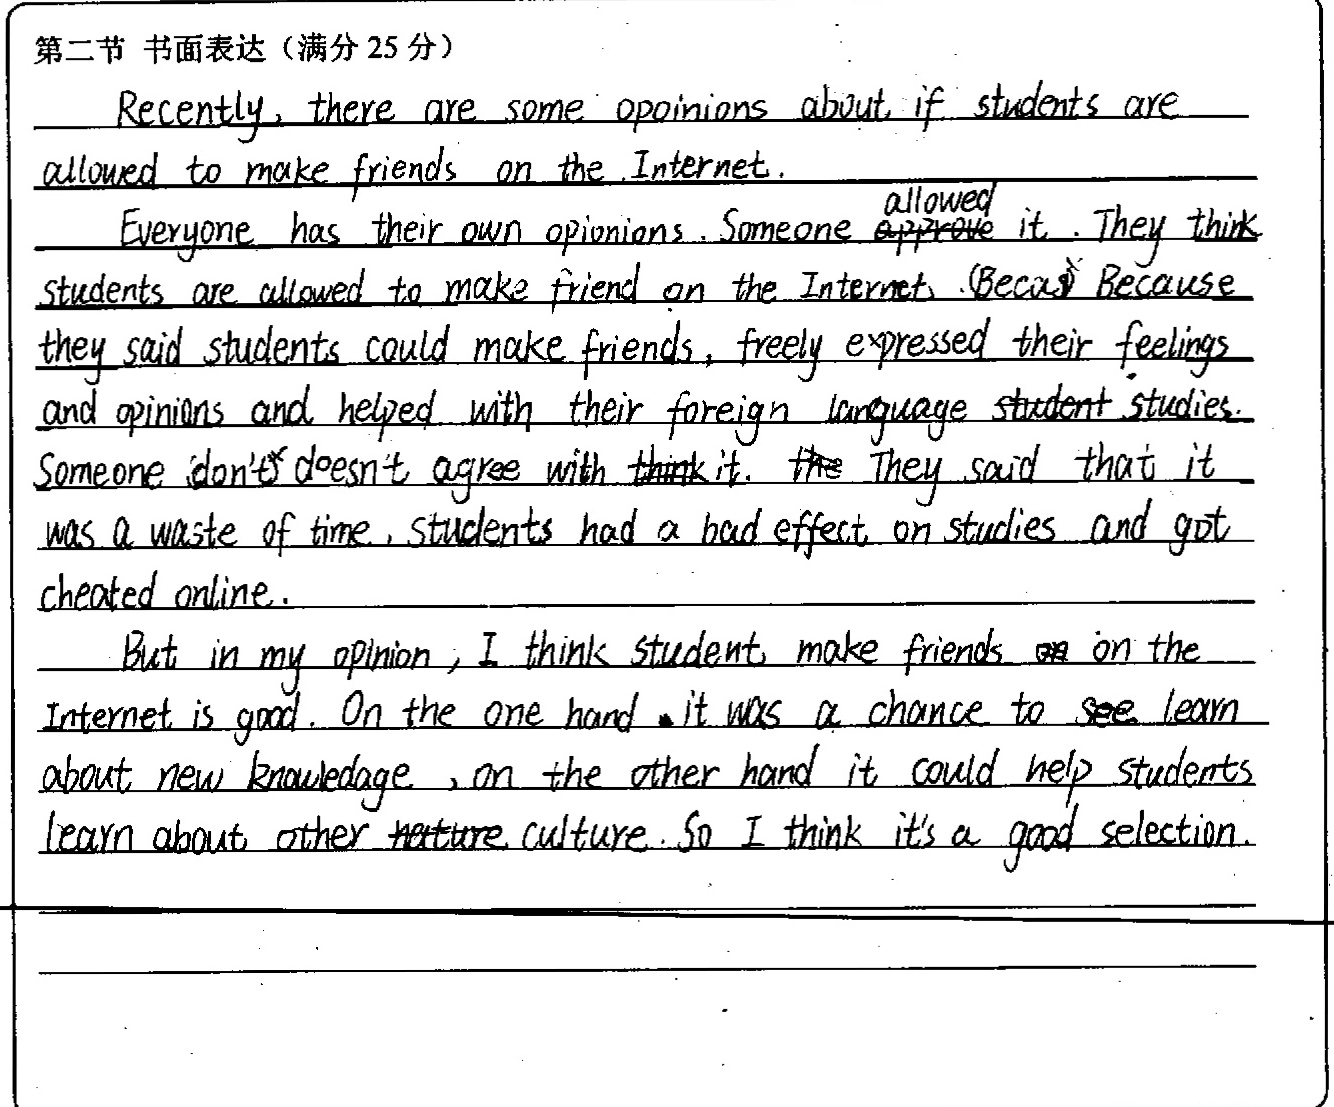 第二节 书面表达（满分 25 分）
Recently, there are some opoinions about if students are
allowed to make friends on the Internet.
allowed
Everyone has their own opionions. Someone approve it. They think
students are allowed to make friend on the Internet. (Becas) Because
they said students could make friends, freely expressed their feelings
and opinions and helped with their foreign language student studies.
Someone don't doesn't agree with think it. the They said that it
was a waste of time, students had a bad effect on studies and got
cheated online.
But in my opinion, I think student make friends on on the
Internet is good. On the one hand it was a chance to see learn
about new knowledage, on the other hand it could help students
learn about other nature culture. So I think it's a good selection.